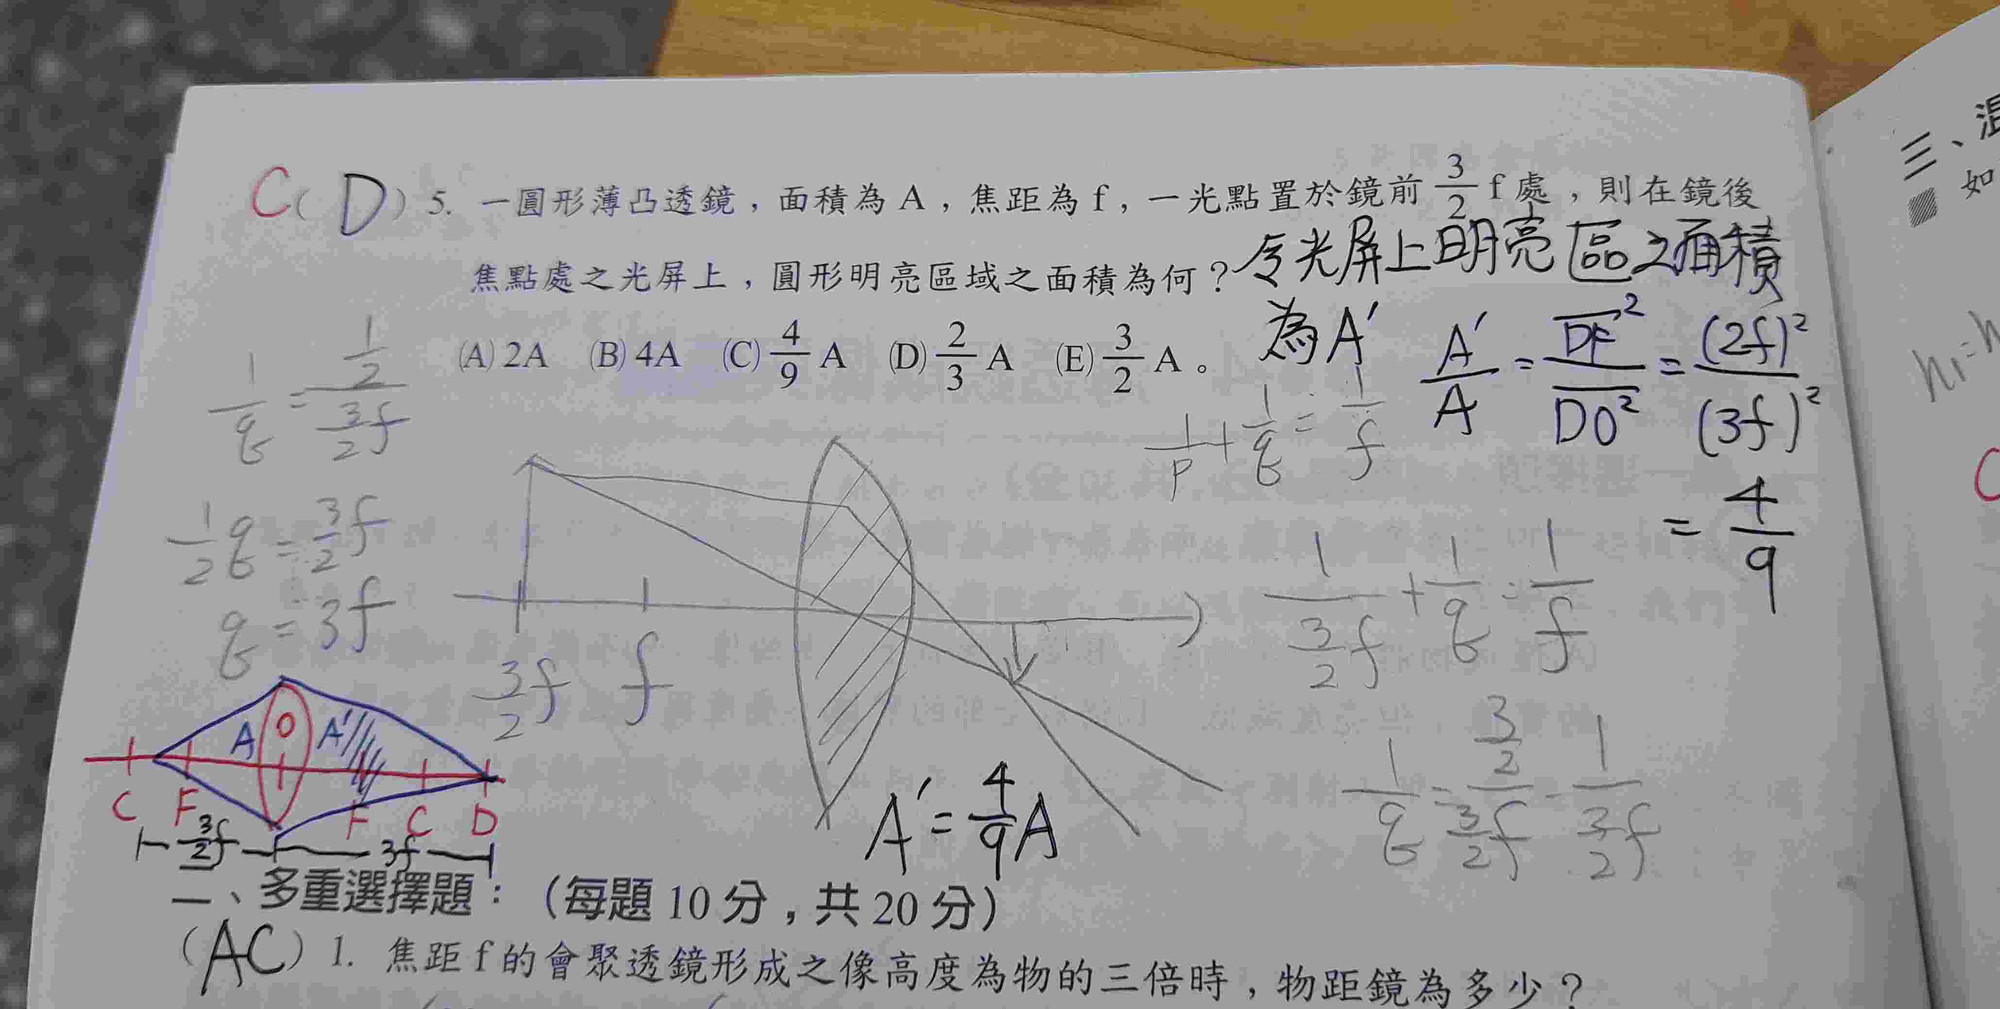 C ( D ) 5. 一圓形薄凸透鏡，面積為 A，焦距為 f，一光點置於鏡前 3/2 f 處，則在鏡後
焦點處之光屏上，圓形明亮區域之面積為何？
(A) 2A (B) 4A (C) 4/9 A (D) 2/3 A (E) 3/2 A。
令光屏上明亮區之面積
為A' A'/A = DF²/DO² = (2f)²/(3f)²
= 4/9
1/q = 1/2 / 3/2f
1/2 q = 3/2 f
q = 3f
1/p + 1/q = 1/f
1 / 3/2f + 1/q = 1/f
1/q = 3/2 / 3/2f - 1 / 3/2f
3/2f f
A O A'
C F F C D
3/2f 3f
A' = 4/9 A
二、多重選擇題：（每題 10 分，共 20 分）
( AC ) 1. 焦距 f 的會聚透鏡形成之像高度為物的三倍時，物距鏡為多少？
三、溫
如
h₁=h
C